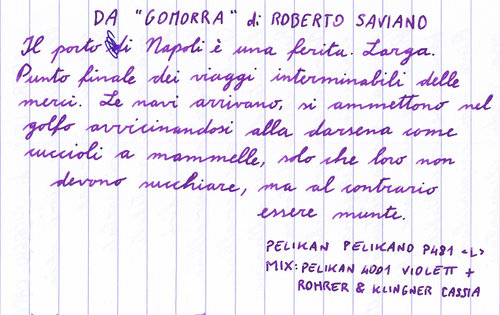 DA "GOMORRA" di ROBERTO SAVIANO
Il porto di Napoli è una ferita. Larga.
Punto finale dei viaggi interminabili delle
merci. Le navi arrivano, si ammettono nel
golfo avvicinandosi alla darsena come
cuccioli a mammelle, solo che loro non
devono succhiare, ma al contrario
essere munte.
PELIKAN PELIKANO P481 <L>
MIX: PELIKAN 4001 VIOLETT +
ROHRER & KLINGNER CASSIA